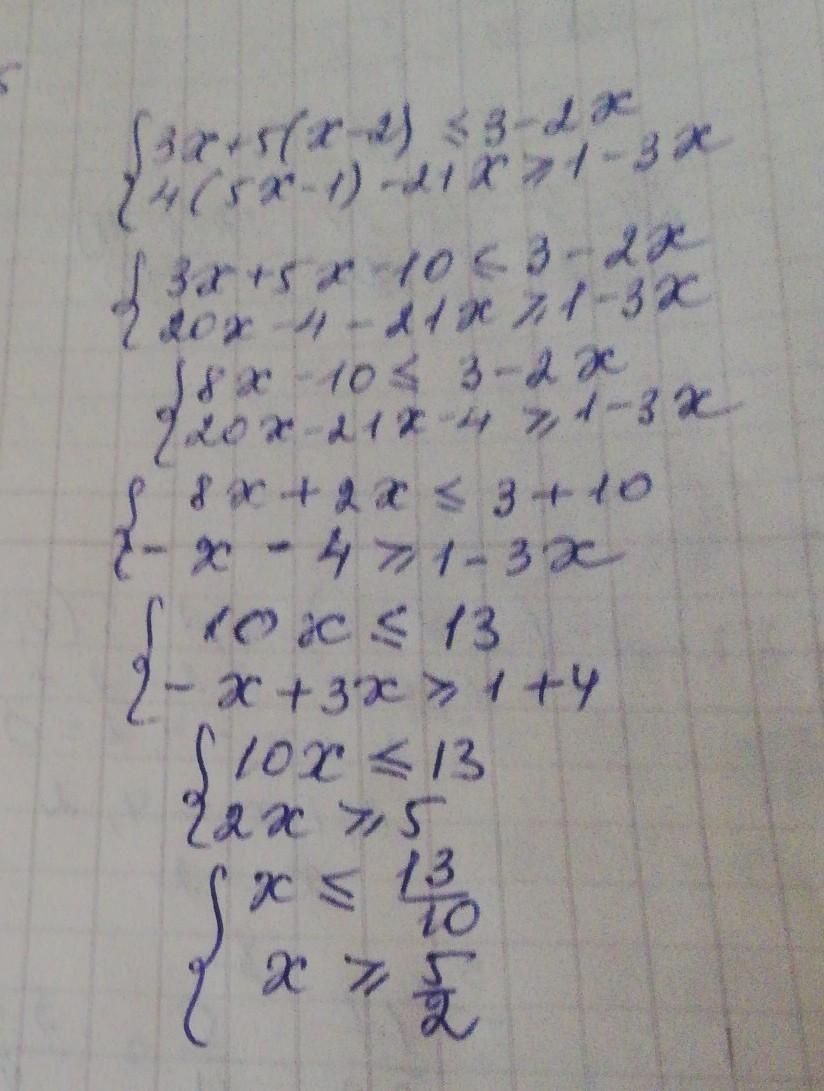 3x+5(x-2) ≤ 3-2x
4(5x-1)-21x ≥ 1-3x
3x+5x-10 ≤ 3-2x
20x-4-21x ≥ 1-3x
8x-10 ≤ 3-2x
20x-21x-4 ≥ 1-3x
8x+2x ≤ 3+10
-x-4 ≥ 1-3x
10x ≤ 13
-x+3x ≥ 1+4
10x ≤ 13
2x ≥ 5
x ≤ 13/10
x ≥ 5/2